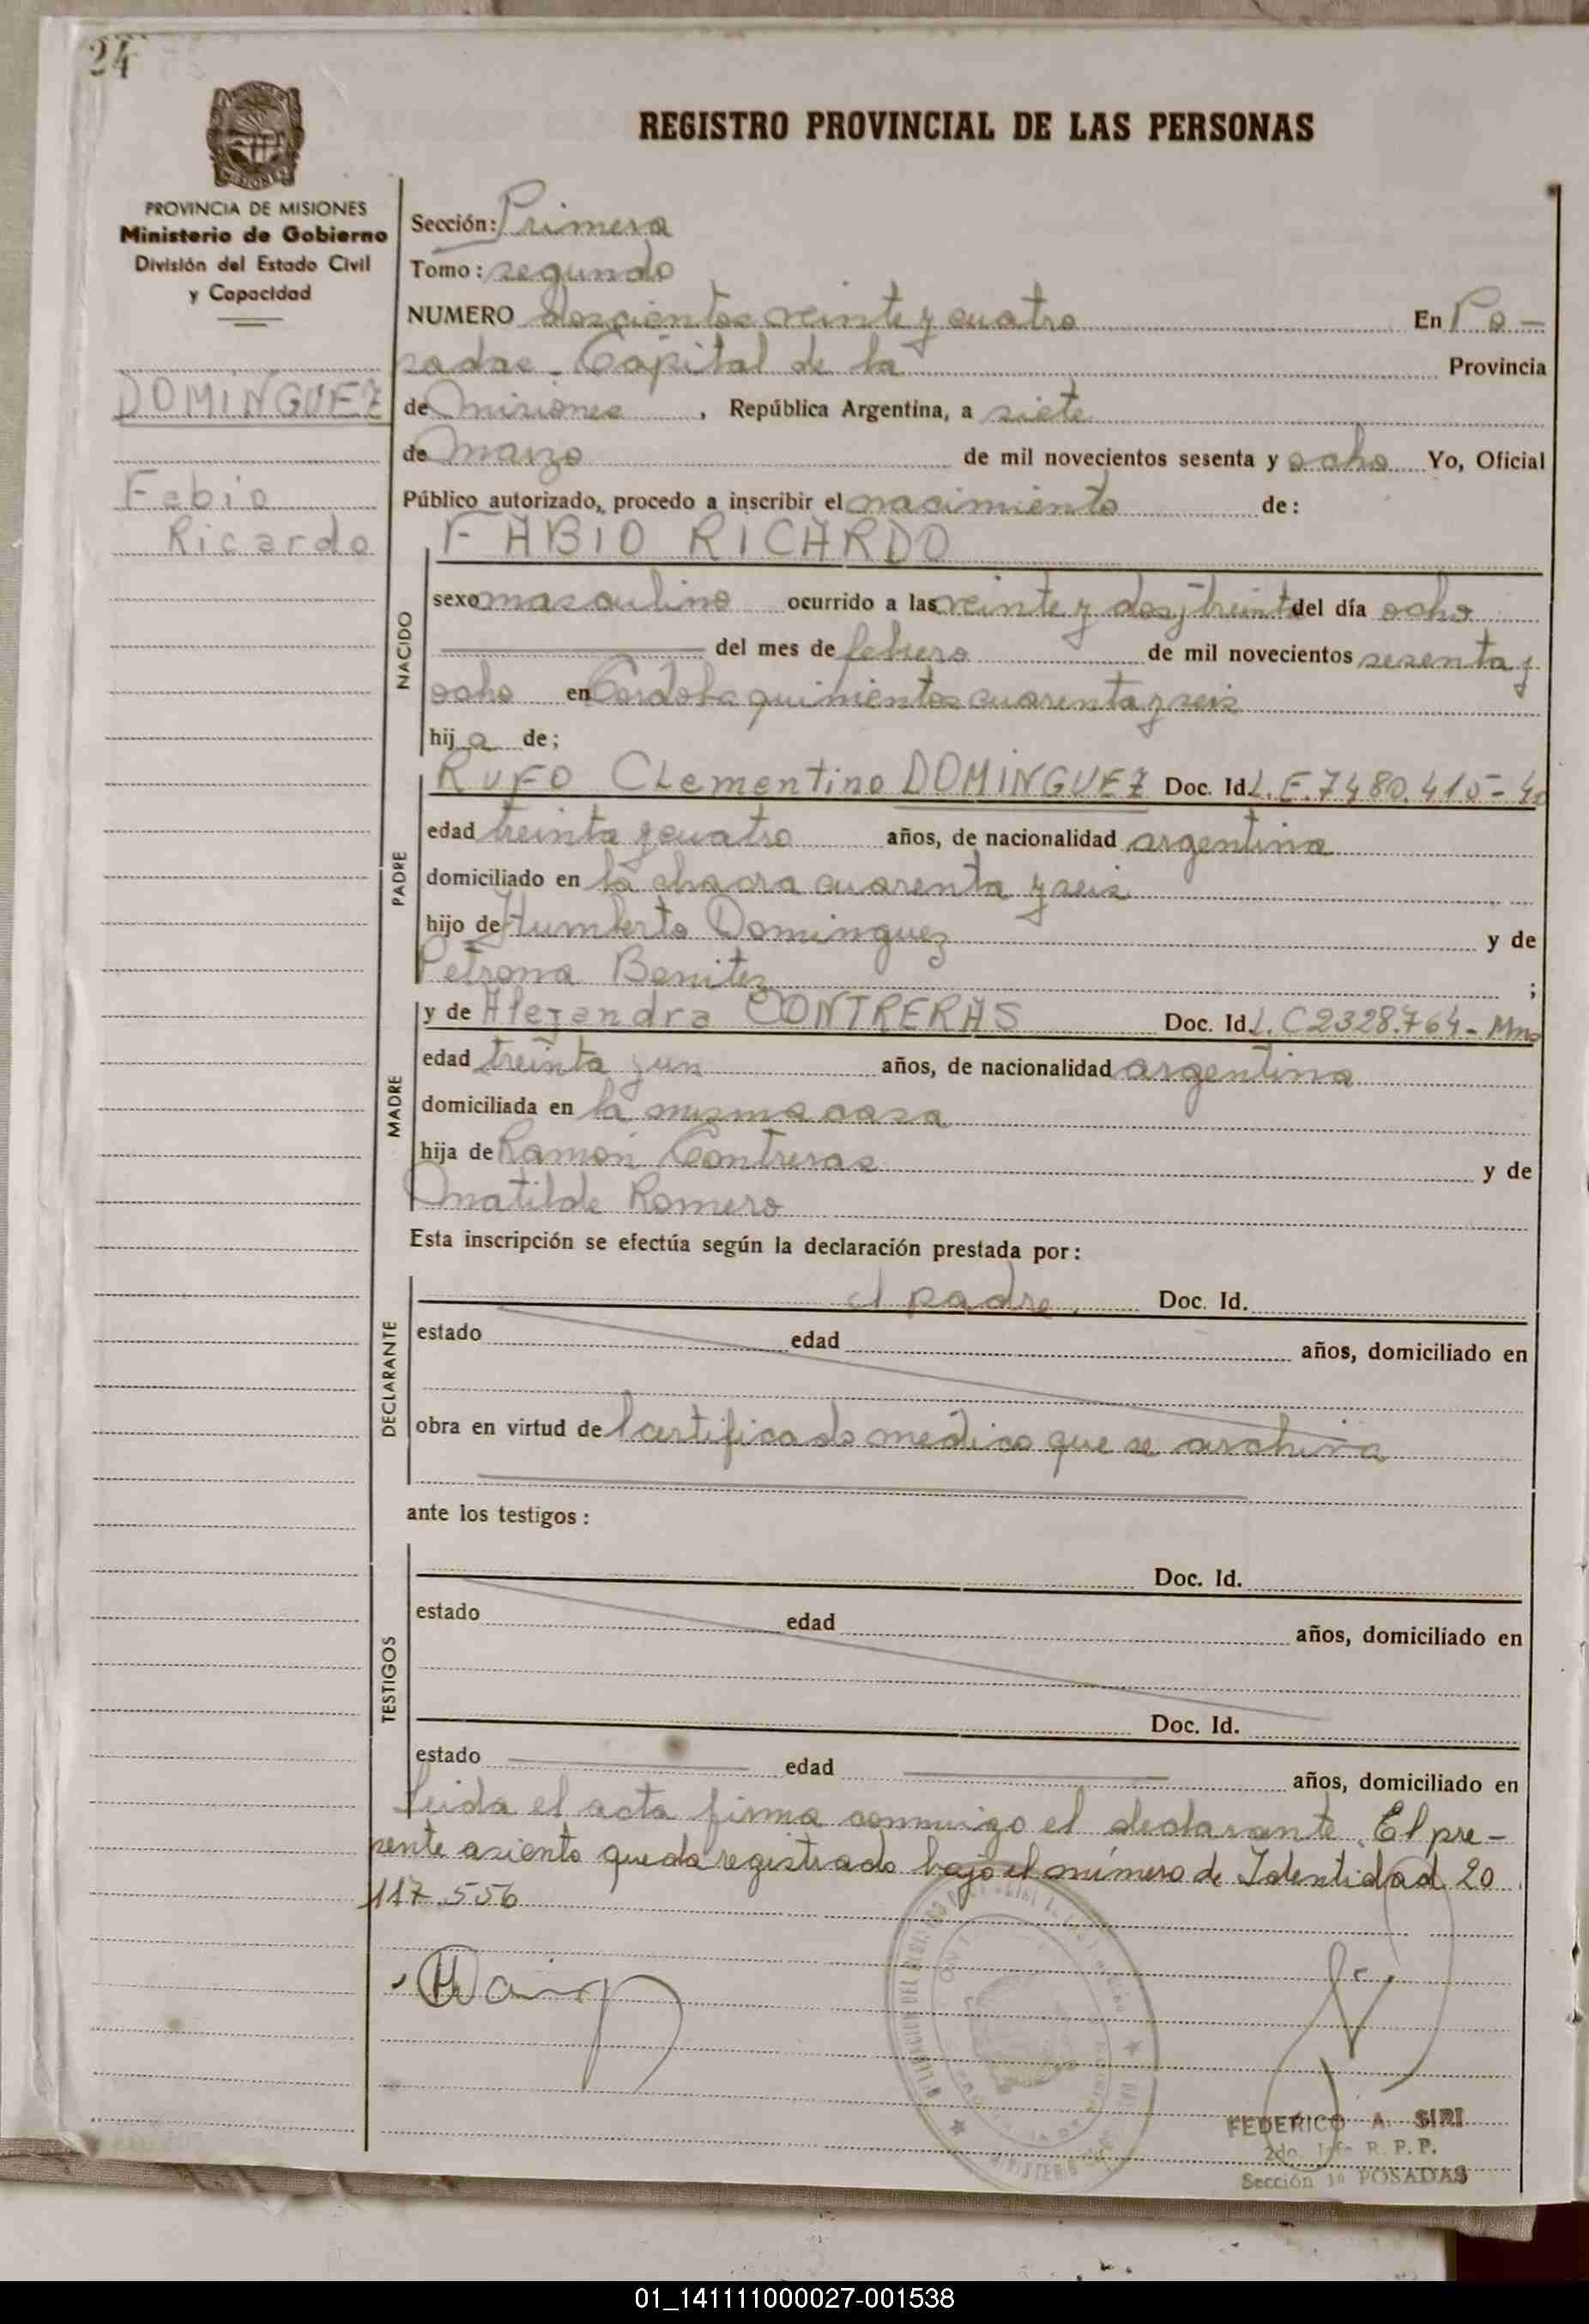 24
REGISTRO PROVINCIAL DE LAS PERSONAS
MISIONES
PROVINCIA DE MISIONES
Ministerio de Gobierno
División del Estado Civil
y Capacidad
DOMINGUEZ
Fabio
Ricardo
Sección: Primera
Tomo: segundo
NUMERO doscientos veinte y cuatro En Po-
sadas - Capital de la Provincia
de Misiones, República Argentina, a siete
de marzo de mil novecientos sesenta y ocho Yo, Oficial
Público autorizado, procedo a inscribir el nacimiento de:
FABIO RICARDO
NACIDO
sexo masculino ocurrido a las veinte y dos y treinta del día ocho
del mes de febrero de mil novecientos sesenta y
ocho en Córdoba quinientos cuarenta y seis
hij a de;
PADRE
RUFO Clementino DOMINGUEZ Doc. Id. L.E. 7480.410-
edad treinta y cuatro años, de nacionalidad argentina
domiciliado en la chacra cuarenta y seis
hijo de Humberto Dominguez y de
Petrona Benitez ;
MADRE
y de Alejandra CONTRERAS Doc. Id. L.C 2328.764- Mnes
edad treinta y un años, de nacionalidad argentina
domiciliada en la misma casa
hija de Ramón Contreras y de
Matilde Romero
Esta inscripción se efectúa según la declaración prestada por:
DECLARANTE
el padre. Doc. Id.
estado edad años, domiciliado en
obra en virtud de l certificado médico que se archiva
ante los testigos:
TESTIGOS
Doc. Id.
estado edad años, domiciliado en
Doc. Id.
estado edad años, domiciliado en
Leida el acta firma conmigo el declarante. El pre-
sente asiento queda registrado bajo el número de Identidad 20
117.556
FEDERICO A. SIRI
2do. Jefe R. P. P.
Sección 1a POSADAS
01_141111000027-001538